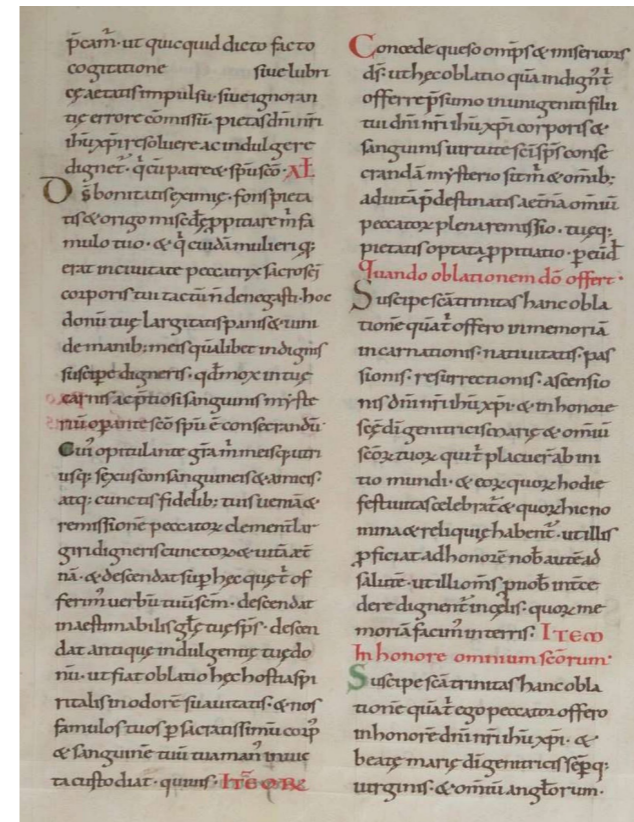 p̄cam̄· ut quicquid dicto facto
cogitatione siue lubri
cę aetatis impulsu· siue ignoran
tię errore comisiu· pietas dn̄i nr̄i
ih̄u xp̄i resoluere ac indulgere
dignet᷑· q̇ cū patre & sp̄u sc̄o· AŁ
Ds̄ bonitatis eximię· fons pieta
tis & origo mis̄cdę ꝓpitiare m̄ fa
mulo tuo· & q̇ cuidā mulieri q;
erat in ciuitate peccatrix sacrosc̄i
corporis tui tactū n̄ denegasti· hoc
donū tuę largitatis panis & uini
de manib; meis qualibet indignis
suscipe digneris· qd̄ mox in tuę
carnis ac p̄tiosi sanguinis myste
riū oꝑante sc̄o sp̄u ē consecrandū·
Cui opitulante gr̄a m̄ meisq; utri
usq; sexus consanguineis & amicis·
atq; cunctis fidelib; tuis ueniā &
remissionē peccatoꝝ clement̄ lar
giri digneris cunctoꝝ & uitā æt̄
nā· & descendat suꝑ hęc quę t̄ of
ferim᷒ uerbū tuū sc̄m· descendat
inaestimabilis gl̄ę tuę sp̄s· descen
dat antiquę indulgentię tuę do
nū· ut fiat oblatio hęc hostia spi
ritalis in odorē suauitatis· & nos
famulos tuos ꝑ sacratissimū corp᷒
& sanguinē tuū tua man᷒ inuic
ta custodiat· qui uiuis· ITĒ OR̄
Concede queso omp̄s & misericors
ds̄· ut hęc oblatio quā indign᷒ t̄
offerre p̄sumo in unigeniti filii
tui dn̄i nr̄i ih̄u xp̄i corporis &
sanguinis uirtute sc̄i sp̄s conse
cranda mysterio sit m̄ & omīb;
ad uitā p̄destinatis aet̄nā omiū
peccatoꝝ plena remissio· tuęq;
pietatis optata ꝓpitiatio· ꝑ eūd̄
Quando oblationem dō offert·
Suscipe sc̄a trinitas hanc obla
tionē quā t̄ offero in memoriā
incarnationis· natiuitatis· pas
sionis· resurrectionis· ascensio
nis dn̄i nr̄i ih̄u xp̄i· & in honore
sc̄ę dī genitricis marię & omiū
sc̄oꝝ tuoꝝ qui t̄ placuer̄ ab ini
tio mundi· & eoꝝ quoꝝ hodie
festiuitas celebrat᷑ & quoꝝ hic no
mina & reliquię habent᷑· ut illis
ꝓficiat ad honorē nob̄ autē ad
salutē· ut illi om̄s ꝓ nob̄ int̄ce
dere dignent᷑ in cęlis· quoꝝ me
moriā facim᷒ in terris· ITEM
In honore omnium sc̄orum·
Suscipe sc̄a trinitas hanc obla
tionē quā t̄ ego peccator offero
in honorē dn̄i nr̄i ih̄u xp̄i· &
beatę marię dī genitricis sēꝑq;
uirginis· & omiū angl̄orum·